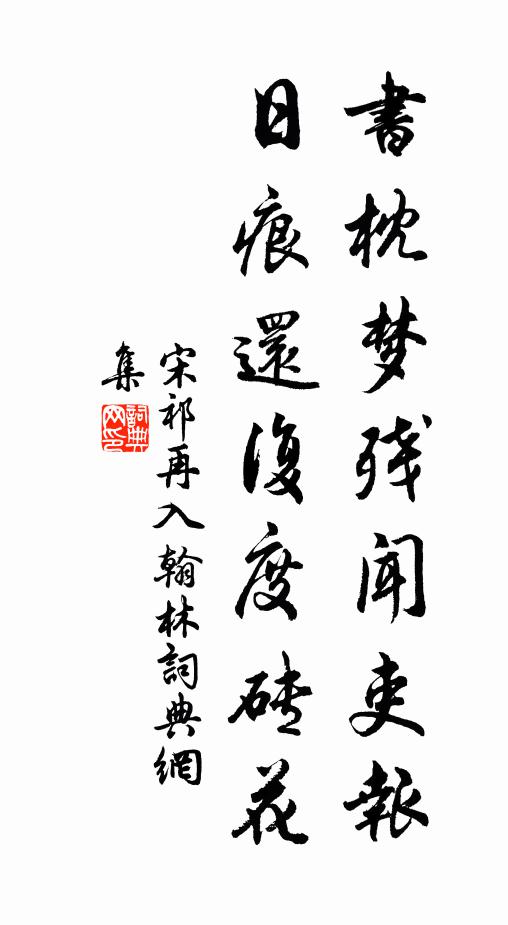 書枕梦残闻吏報
日痕還復度砖花
宋祁再入翰林詞典網
集
詞典网印